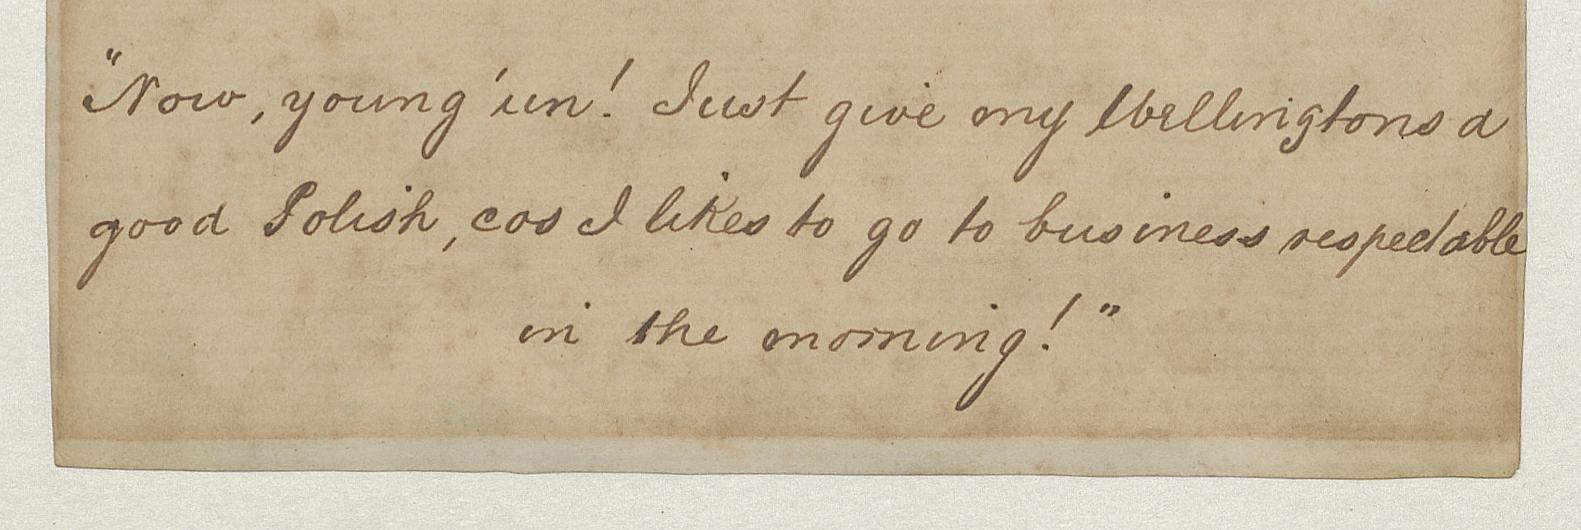 "Now, young 'un! Just give my Wellingtons a
good Polish, cos I likes to go to business respectable
in the morning!"